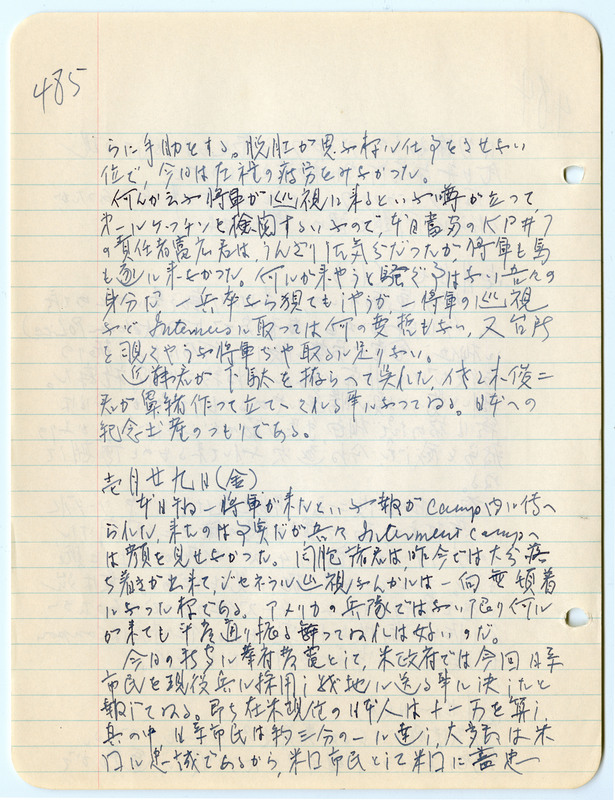 485
らに手助をする。脱肛が思ふ様に仕事をさせない
位で、今日は左程の疲労をみなかった。
何んか云ふ将軍が巡視に来るといふ噂が立って
オールケッチンを検閲するいふので、本日當分のKP
の責任者富広君は、うんざり伝気分だったが、将軍も馬
も遂に来なかった。何にが来やうと騒ぐ事はない吾々の
身分だ 一兵卒なら狽てもしやうが 一将軍の巡視
など Internee に取っては何の要慾もない、又台所
を覗くやうな将軍ぢや取るに足りない。
近藤君が下駄を拵らへて呉れた、俊二
君が鼻緒作って立てゝくれる事になってゐる。日本への
紀念土産のつもりである。
壱月廿九日(金)
本日 一将軍が来たといふ報が camp 内に傳へ
られた、来たのは事実だが吾々 Internment camp へ
は顔を見せなかった。同胞諸君は昨今では大分落
ち着きが出来て、ゼネラル巡視なんかには一向無頓着
になった様である。アメリカの兵隊ではない限り何に
が来ても平常通り振る舞ってゐれば好いのだ。
今日の新聞に華府発電として、米政府では今回日系
市民を現役兵に採用し戦地に送る事に決したと
報じてゐる。即ち在米現住の日本人は十一万を算し
其の中 日系市民は約三分の一に達し、大多数は米
国に忠誠であるから、米国市民として米国に盡忠